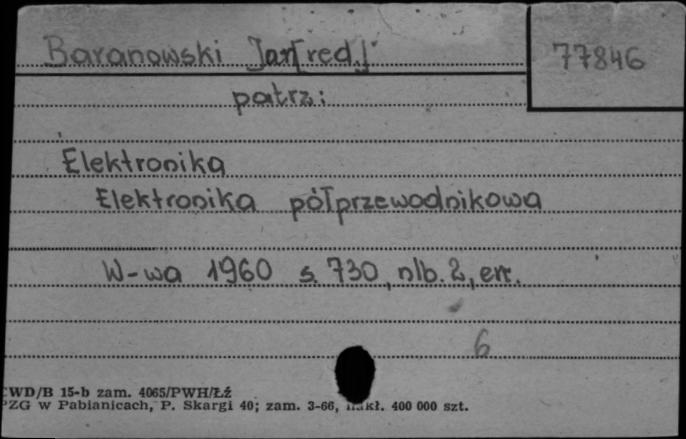 Baranowski Jan[red.]
77846
patrz:
Elektronika
Elektronika półprzewodnikowa
W-wa 1960 s. 730, nlb. 2, err.
6
WD/B 15-b zam. 4065/PWH/Łź
PZG w Pabianicach, P. Skargi 40; zam. 3-66, nakł. 400 000 szt.